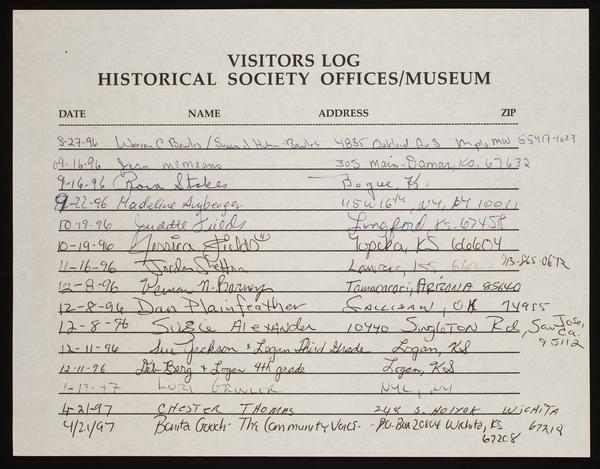 VISITORS LOG
HISTORICAL SOCIETY OFFICES/MUSEUM
DATE NAME ADDRESS ZIP
8-27-96 Warren C Bowles / Susan J Hahn-Bowles 4835 Oakland Av S Mpls MN 55417-1023
09-16-96 Jean McMeans 305 Main - Damar, Ks. 67632
9-16-96 Rosa Stokes Bogue, K.
9-22-96 Madeline 115 W 16th, NY, NY 10011
10-19-96 Fields Longford Ks. 67458
10-19-96 Jessica Fields (4) Topeka, KS 66604
11-16-96 Jordan Lawrence, 913-865-0672
12-8-96 Vernon N. Tumacacori, ARIZONA 85640
12-8-96 Dan Plainfeather SALLISAW, OK 74955
12-8-96 Suzie Alexander 10440 Singleton Rd, San Jose,
Ca.
95112
12-11-96 Sue Jackson & Logan Third Grade Logan, KS
12-11-96 Deb Berg & Logan 4th grade Logan, KS
NYC, NY
4-21-97 CHESTER THOMAS 248 S. WICHITA
4/21/97 Bonita Gooch - The Community Voice - P.O. Box 20804 Wichita, KS 67218
67208